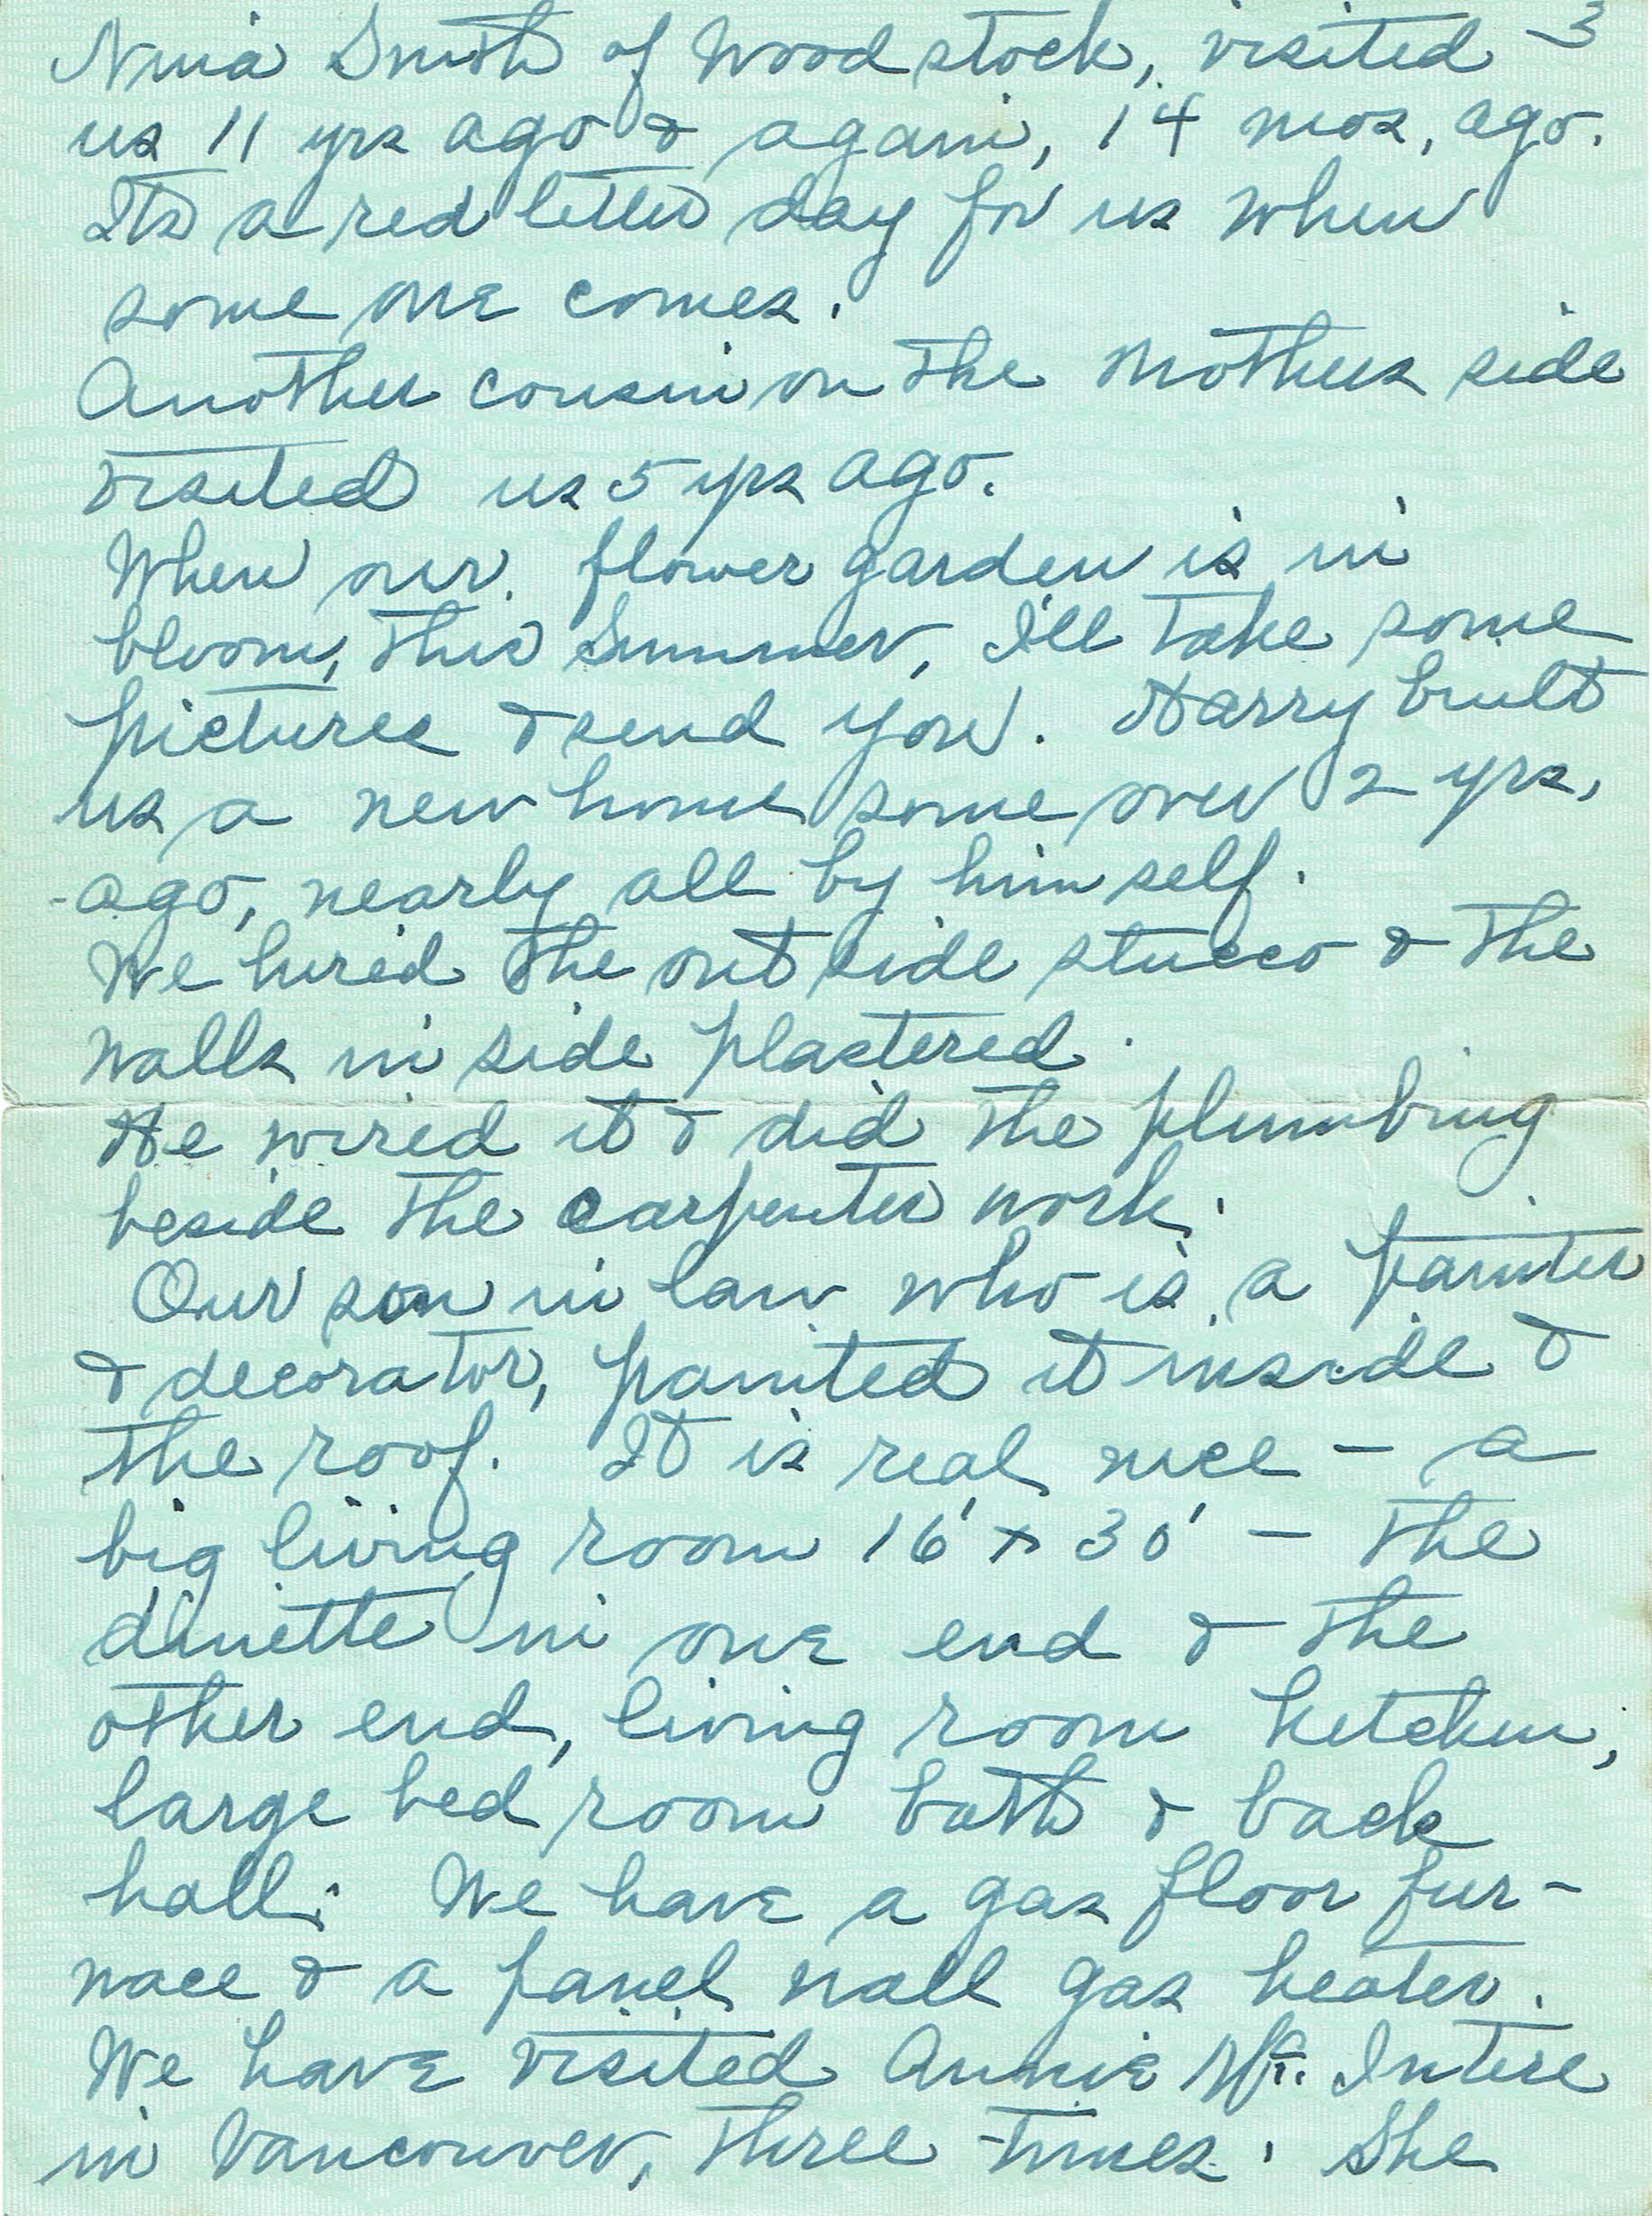 Nina Smith of Woodstock, visited 3
us 11 yrs ago & again, 14 mos, ago.
Its a red letter day for us when
some one comes.
Another cousin on the Mothers side
visited us 5 yrs ago.
When our flower garden is in
bloom, this Summer, I'll take some
pictures & send you. Harry built
us a new home some over 2 yrs,
ago, nearly all by him self.
We hired the out side stucco & the
walls in side plastered.
He wired it & did the plumbing
beside the carpenter work.
Our son in law who is a painter
& decorator, painted it inside &
the roof. It is real nice - a
big living room 16' x 30' - the
dinette in one end & the
other end, living room kitchen,
large bed room bath & back
hall. We have a gas floor fur-
nace & a panel wall gas heater.
We have visited Annie Mc. Intire
in Vancouver, three times. She